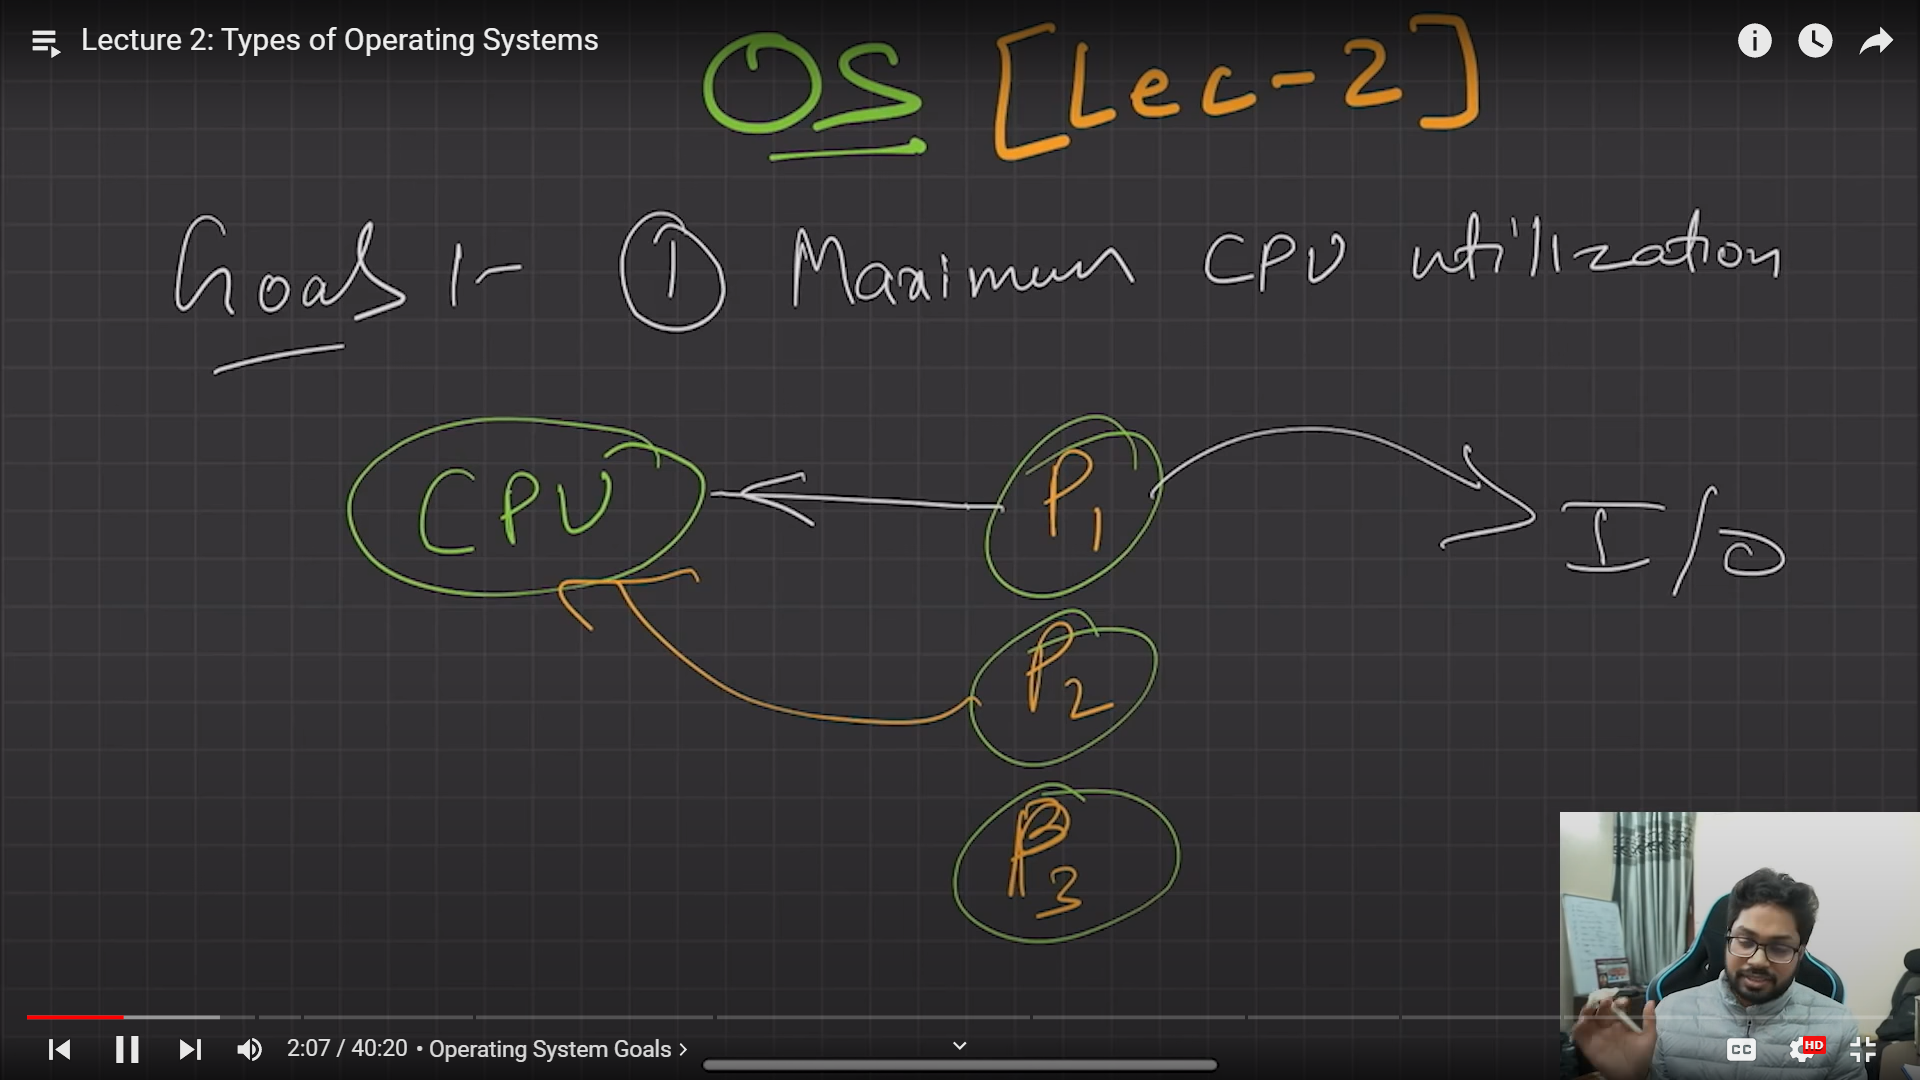 Lecture 2: Types of Operating Systems
OS [Lec-2]
Goals :- ① Maximum CPU utilization
CPU
P1
I/O
P2
P3
2:07 / 40:20 • Operating System Goals >
CC
HD